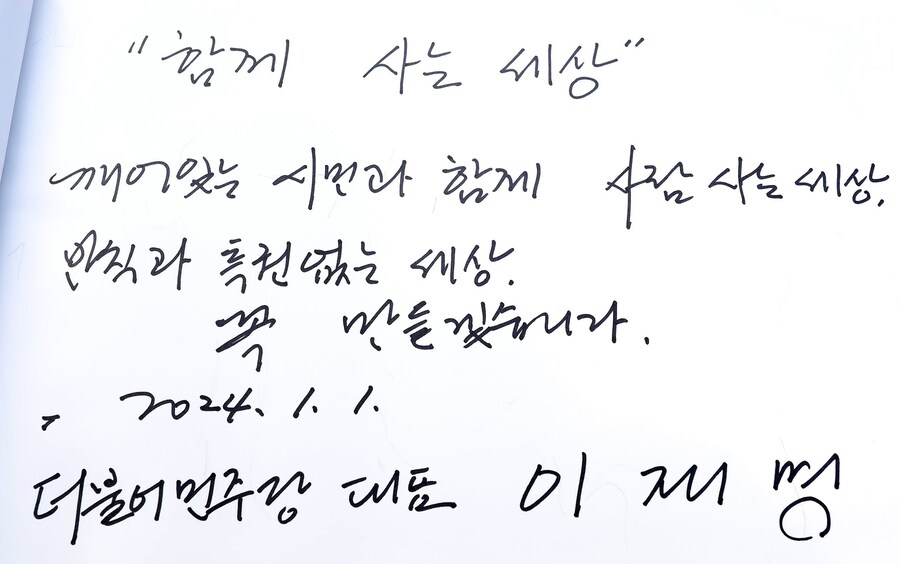 "함께 사는 세상"
깨어있는 시민과 함께 사람 사는 세상.
반칙과 특권없는 세상.
꼭 만들겠습니다.
2024. 1. 1.
더불어민주당 대표 이재명